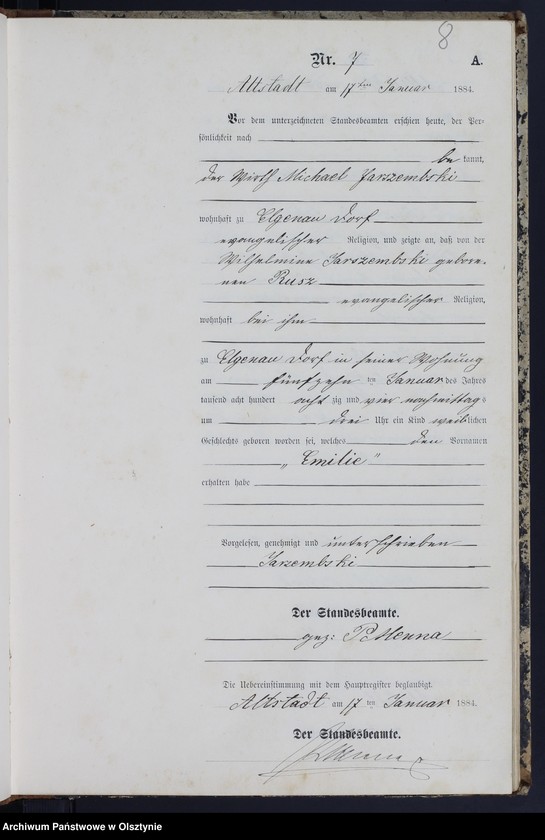 8
Nr. 7 A.
Altstadt am 17ten Januar 1884.
Vor dem unterzeichneten Standesbeamten erschien heute, der Per-
sönlichkeit nach
be kannt,
der Wirth Michael Jarzembski
wohnhaft zu Elgenau Dorf
evangelischer Religion, und zeigte an, daß von der
Wilhelmine Jarszembski gebore-
nen Rusz
evangelischer Religion,
wohnhaft bei ihm
zu Elgenau Dorf in seiner Wohnung
am fünfzehn ten Januar des Jahres
tausend acht hundert acht zig und vier nachmittag
um drei Uhr ein Kind weiblichen
Geschlechts geboren worden sei, welches den Vornamen
„Emilie"
erhalten habe
Vorgelesen, genehmigt und unterschrieben
Jarzembski
Der Standesbeamte.
gez: P Menna
Die Uebereinstimmung mit dem Hauptregister beglaubigt.
Altstadt am 17 ten Januar 1884.
Der Standesbeamte.
Archiwum Państwowe w Olsztynie